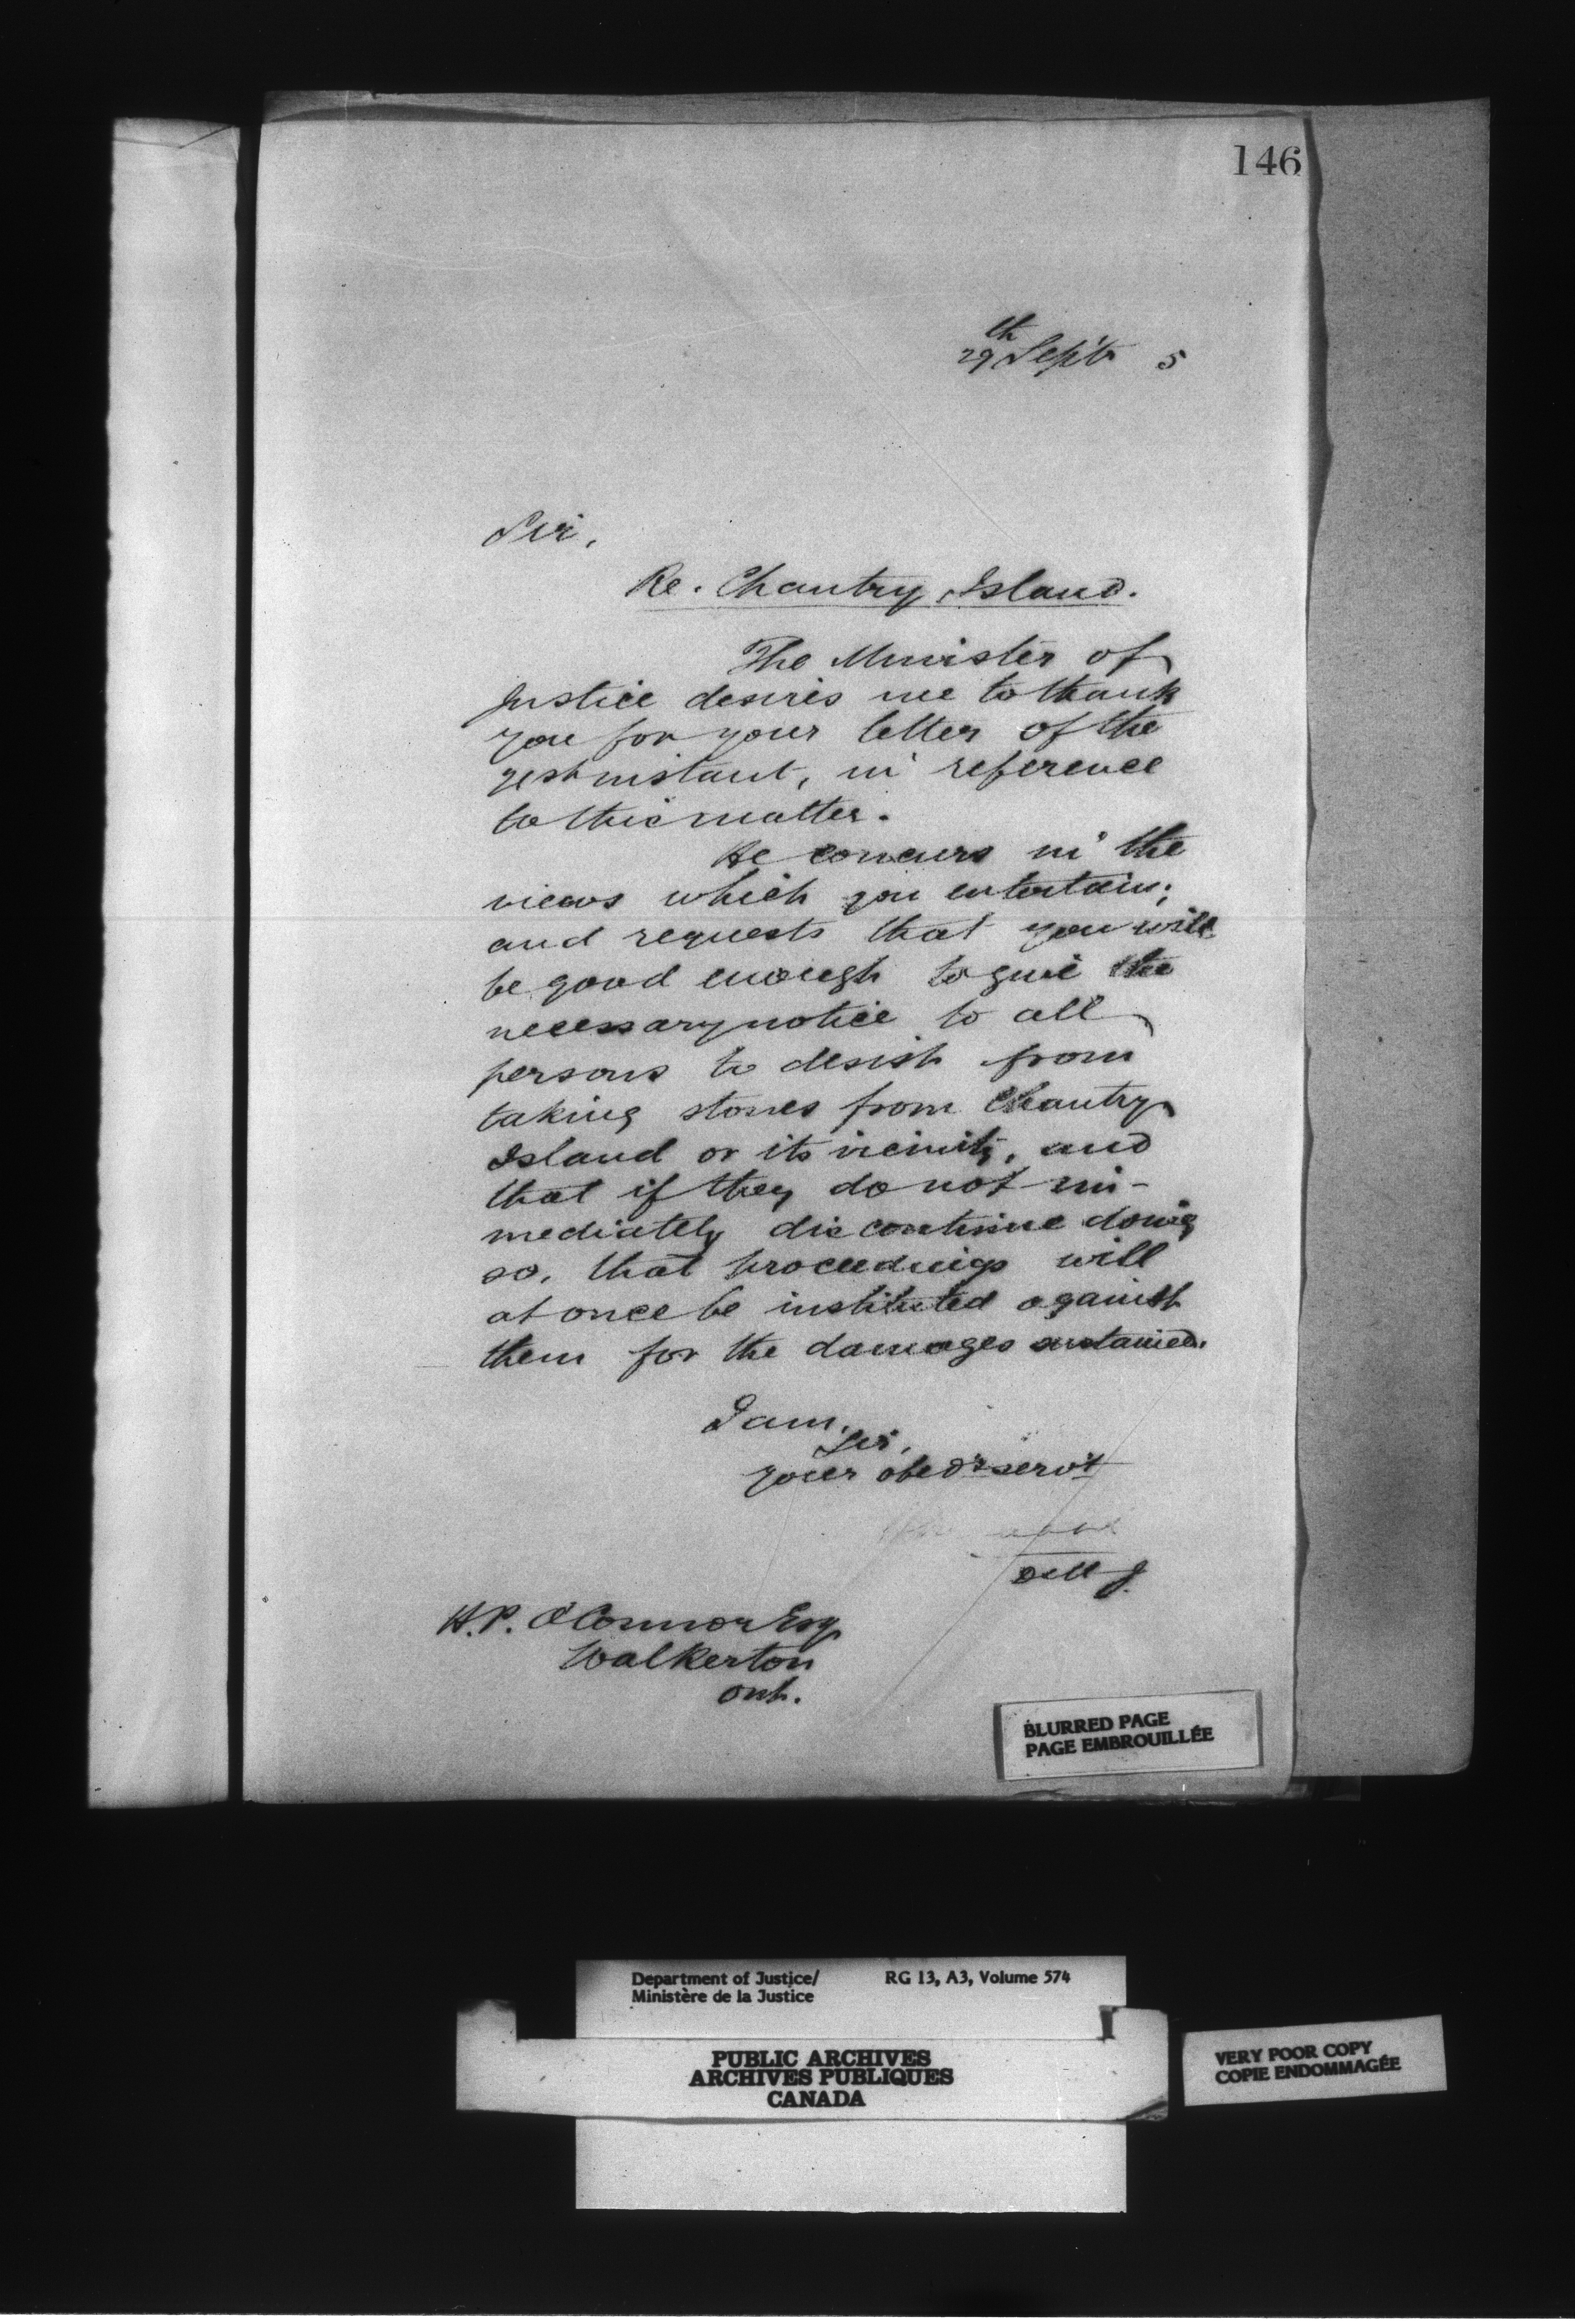 146
29th Sept 5
Sir,
Re. Chantry Island.
The Minister of
Justice desires me to thank
you for your letter of the
instant, in reference
to this matter.
He concurs in the
views which you entertain;
and requests that you will
be good enough to give the
necessary notice to all
persons to desist from
taking stones from Chantry
Island or its vicinity, and
that if they do not im-
mediately discontinue doing
so, that proceedings will
at once be instituted against
them for the damages sustained.
I am,
Sir,
your obedt servt
H.P. O'Connor Esq
Walkerton
Ont.
BLURRED PAGE
PAGE EMBROUILLÉE
Department of Justice/ RG 13, A3, Volume 574
Ministère de la Justice
PUBLIC ARCHIVES
ARCHIVES PUBLIQUES
CANADA
VERY POOR COPY
COPIE ENDOMMAGÉE